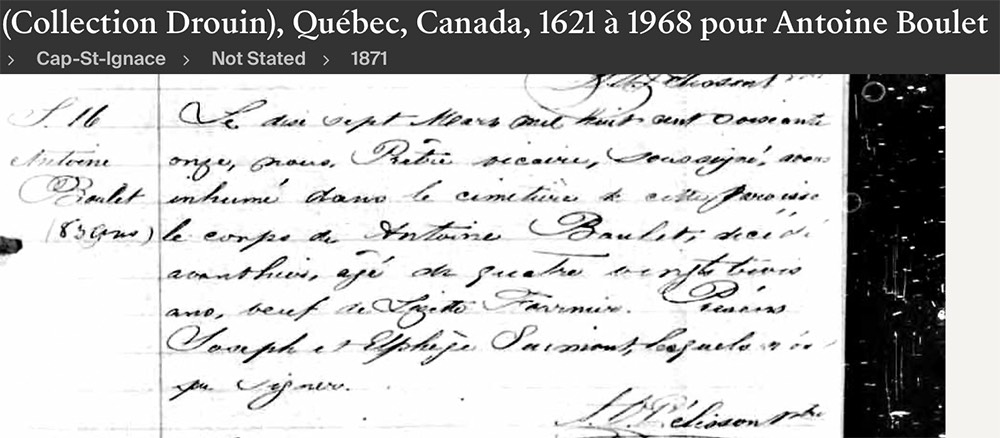 (Collection Drouin), Québec, Canada, 1621 à 1968 pour Antoine Boulet
› Cap-St-Ignace › Not Stated › 1871
S. 16
Antoine
Boulet
(83 ans)
Le dix sept Mars mil huit cent soixante
onze, nous, Prêtre vicaire, soussigné, avons
inhumé dans le cimetière de cette paroisse
le corps de Antoine Boulet, décédé
avant hier, âgé de quatre vingt trois
ans, veuf de Fournier. Présens
Joseph et Elphège lesquels n'ont
pu signer.
Pélisson Ptre